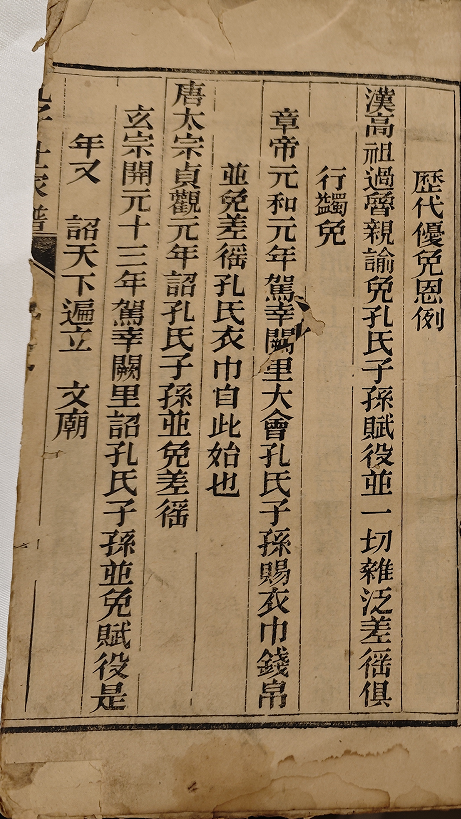 歷代優免恩例
漢高祖過魯親諭免孔氏子孫賦役並一切雜泛差徭俱
行蠲免
章帝元和元年駕幸闕里大會孔氏子孫賜衣巾錢帛
並免差徭孔氏衣巾自此始也
唐太宗貞觀元年詔孔氏子孫並免差徭
玄宗開元十三年駕幸闕里詔孔氏子孫並免賦役是
年又 詔天下遍立 文廟
家譜